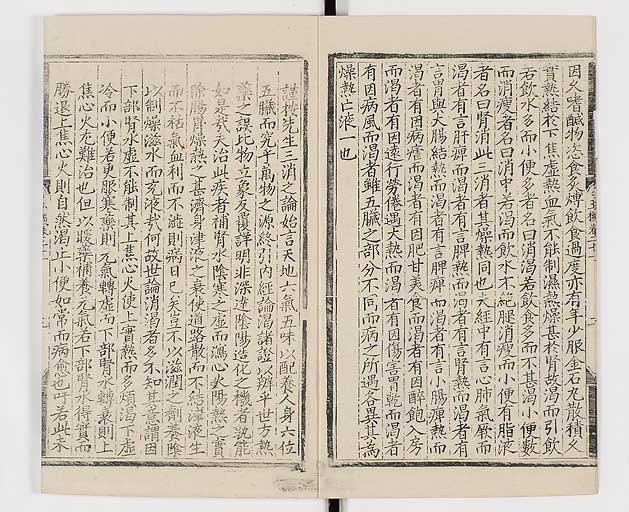 因久嗜鹹物恣食炙煿飲食過度亦有年少服金石丸散積久
實熱結於下焦虛熱血氣不能制濕熱燥甚於腎故渴而引飲
若飲水多而小便多者名曰消渴若飲食多而不甚渴小便數
而消瘦者名曰消中若渴而飲水不絕腿消瘦而小便有脂液
者名曰腎消此三消者其燥熱同也夫經中有言心肺氣厥而
渴者有言肝痺而渴者有言脾熱而渴者有言腎熱而渴者有
言胃與大腸結熱而渴者有言脾痺而渴者有言小腸痺熱而
渴者有因病瘧而渴者有因肥甘美食而渴者有因醉飽入房
而渴者有因遠行勞倦遇大熱而渴者有因傷害胃乾而渴者
有因病風而渴者雖五臟之部分不同而病之所遇各異其為
燥熱亡液一也
謹按先生三消之論始言天地六氣五味以配養人身六位
五臟而究乎萬物之源終引內經論渴諸證以辨乎世方熱
藥之誤比物立象反覆詳明非深達陰陽造化之機者孰能
如是哉夫治此疾者補腎水陰寒之虛而瀉心火陽熱之實
除腸胃燥熱之甚濟身津液之衰使道路散而不結津液生
而不枯氣血利而不澁則病日已矣豈不以滋潤之劑養陰
以制燥滋水而充液哉何故世論消渴者多不知其意謂因
下部腎水虛不能制其上焦心火使上實熱而多煩渴下虛
冷而小便者更服寒藥則元氣轉虛而下部腎水轉衰則上
焦心火尤難治也但以暖藥補養元氣若下部腎水得實而
勝退上焦心火則自然渴止小便如常而病愈也吁若此未